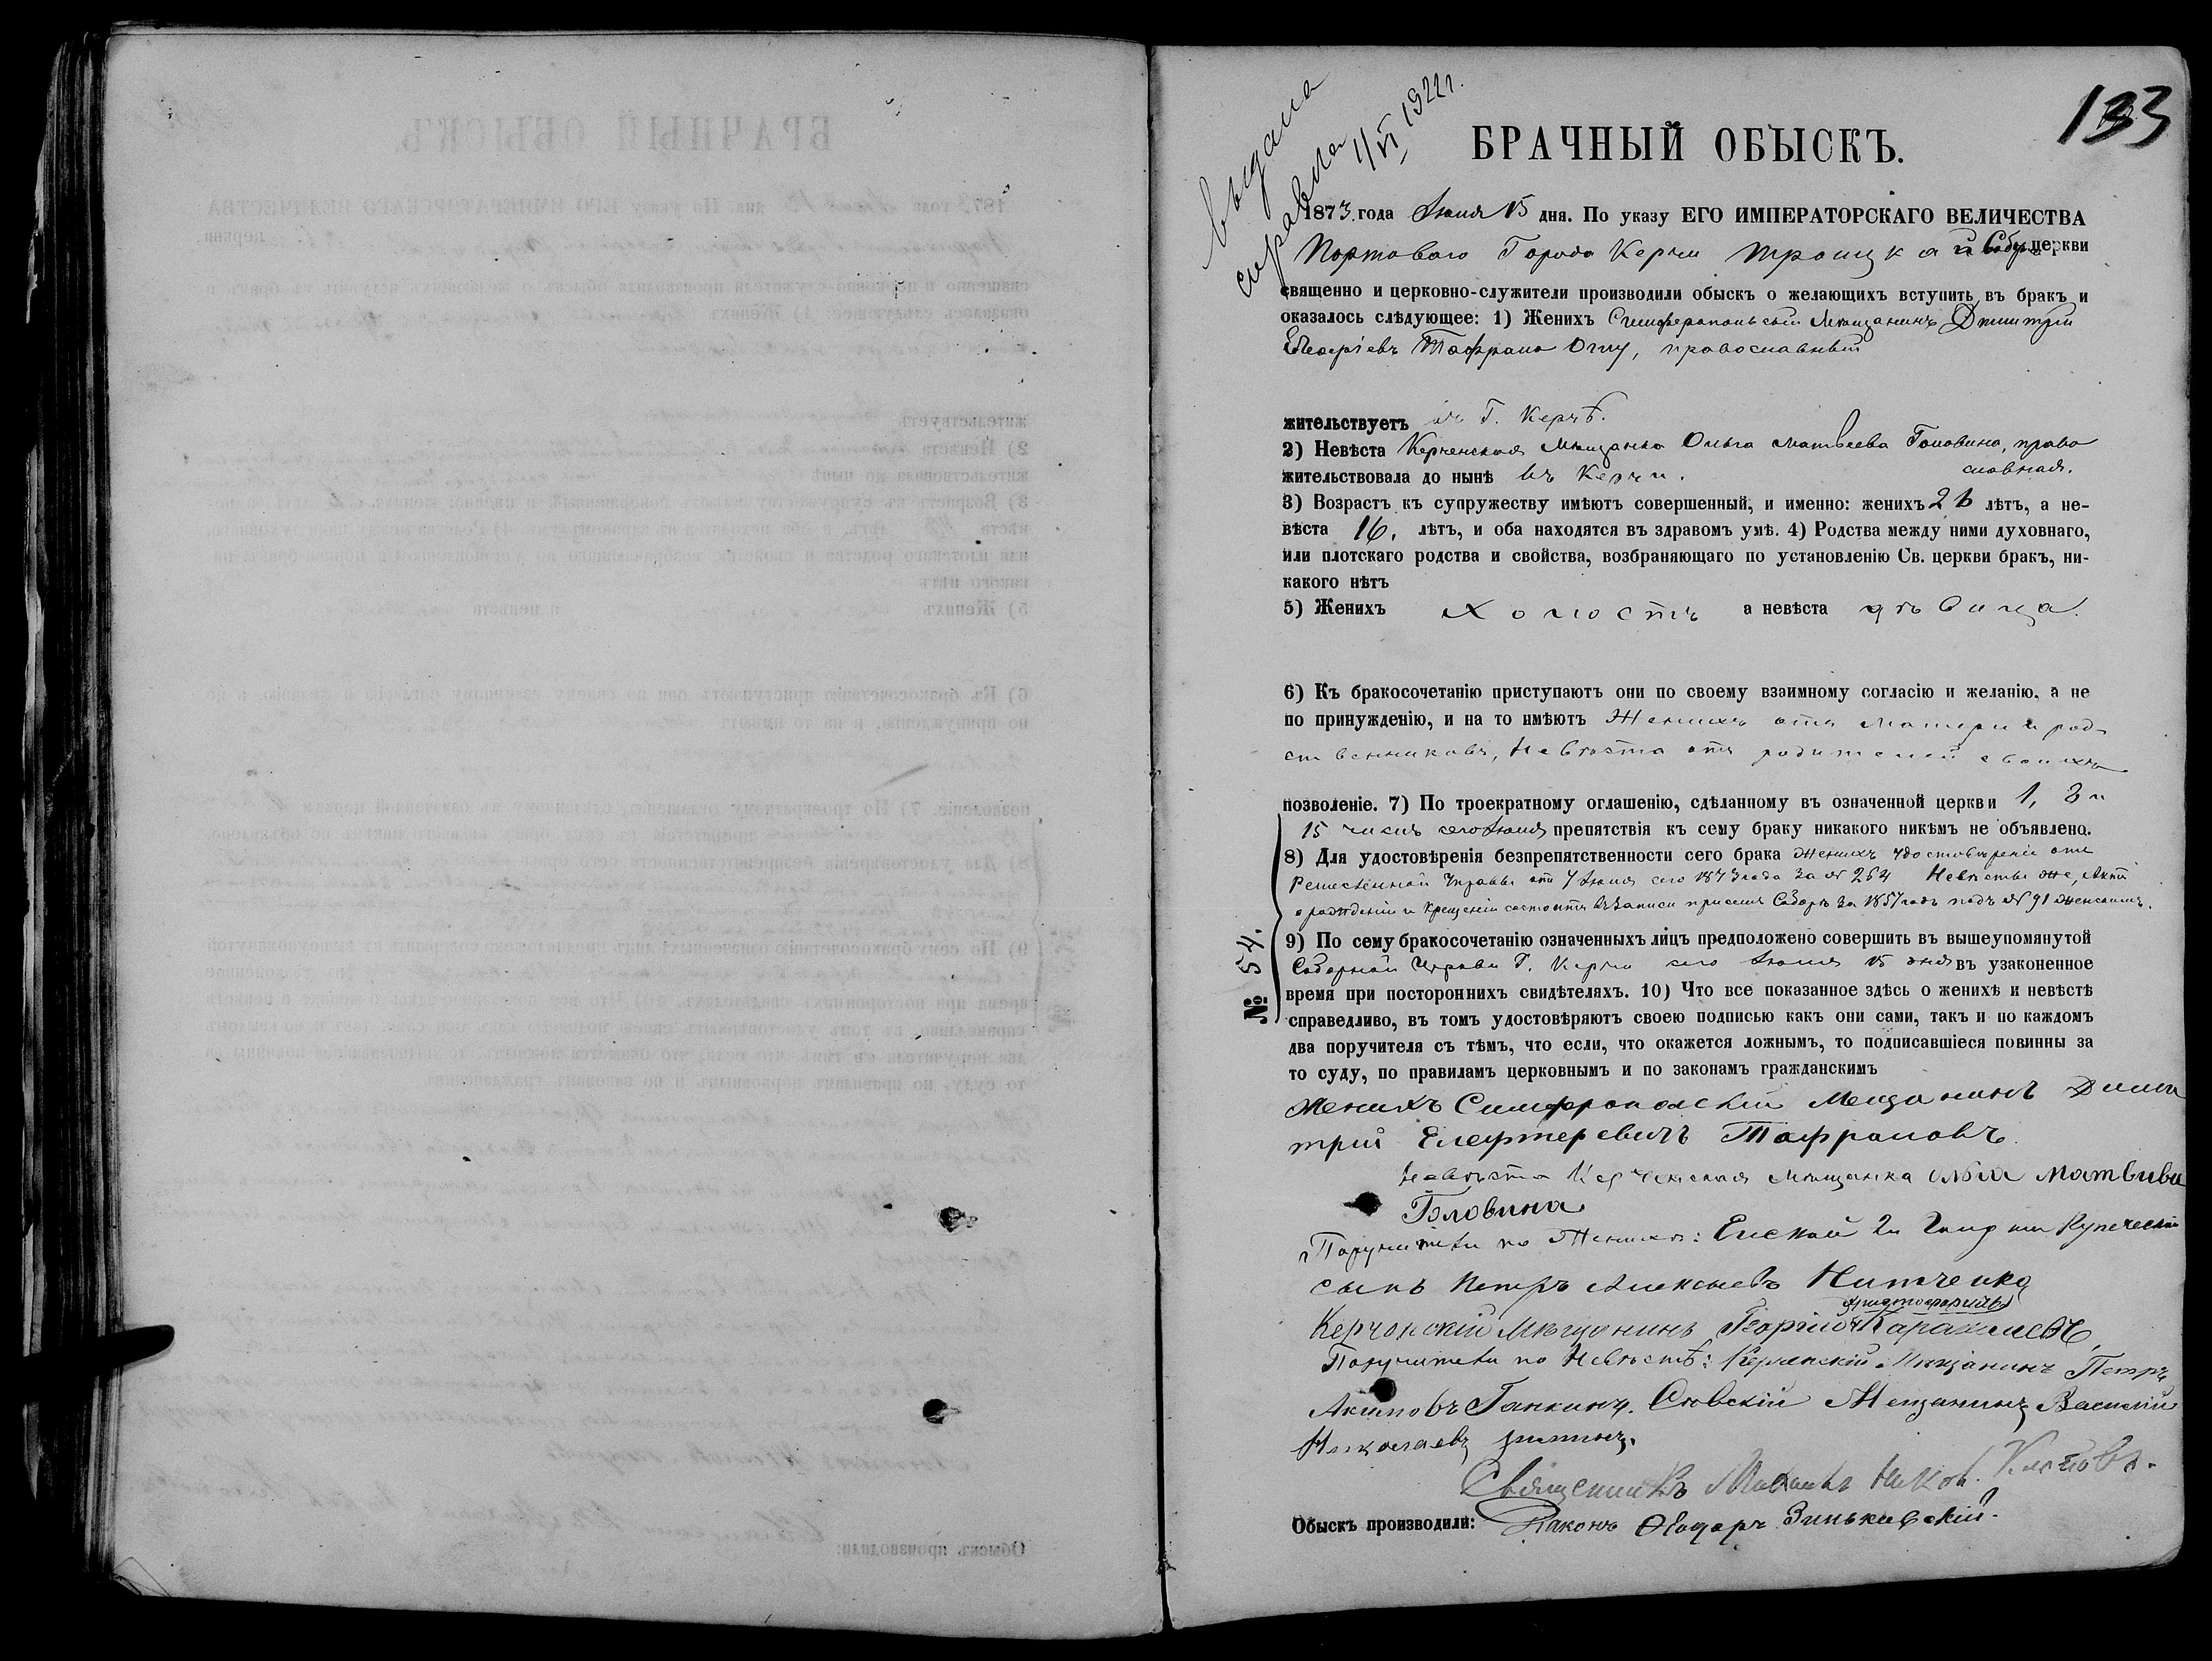 133
выдана
справка 1/VI 1922 г.
БРАЧНЫЙ ОБЫСКЪ.
1873 года Іюня 15 дня. По указу ЕГО ИМПЕРАТОРСКАГО ВЕЛИЧЕСТВА
Портоваго Города Керчи Троицкой Собор церкви
священно и церковно-служители производили обыскъ о желающихъ вступить въ бракъ и
оказалось слѣдующее: 1) Женихъ Симферопольскій Мѣщанинъ Дмитрій
Тафрано Оглу, православный
жительствуетъ въ Г. Керчѣ.
2) Невѣста Керченская Мѣщанка Ольга Матвѣева Головина, право
славная.
жительствовала до нынѣ въ Керчи.
3) Возрастъ къ супружеству имѣютъ совершенный, и именно: женихъ 26 лѣтъ, а не-
вѣста 16, лѣтъ, и оба находятся въ здравомъ умѣ. 4) Родства между ними духовнаго,
или плотскаго родства и свойства, возбраняющаго по установленію Св. церкви бракъ, ни-
какого нѣтъ
5) Женихъ холостъ а невѣста дѣвица.
6) Къ бракосочетанію приступаютъ они по своему взаимному согласію и желанію, а не
по принужденію, и на то имѣютъ Женихъ отъ Матери и род-
ственниковъ, Невѣста отъ родителей своихъ
позволеніе. 7) По троекратному оглашенію, сдѣланному въ означенной церкви 1, 8 и
15 числъ сего Іюня препятствія къ сему браку никакого никѣмъ не объявлено.
8) Для удостовѣренія безпрепятственности сего брака Женихъ удостовѣреніе отъ
Ремесленной Управы отъ 7 Іюня сего 1873 года за № 264 Невѣсты же, Актъ
о рожденіи и крещеніи состоитъ въ записи при семъ Соборѣ за 1857 годъ подъ № 91 женскимъ.
№ 54.
9) По сему бракосочетанію означенныхъ лицъ предположено совершить въ вышеупомянутой
Соборной Церкви Г. Керчи сего Іюня 15 дня въ узаконенное
время при постороннихъ свидѣтеляхъ. 10) Что все показанное здѣсь о женихѣ и невѣстѣ
справедливо, въ томъ удостовѣряютъ своею подписью какъ они сами, такъ и по каждомъ
два поручителя съ тѣмъ, что если, что окажется ложнымъ, то подписавшіеся повинны за
то суду, по правиламъ церковнымъ и по законамъ гражданскимъ
Женихъ Симферополскій Мещанинъ Дими
трій Елефтеревичъ Тафрановъ
Невѣста Керченская Мѣщанка Матвива
Головина
Поручители по Женихѣ: Ейской 2й Гильдии Купеческій
сынъ Петръ Алексѣевъ Нитченко
Керчонскій Мѣщонинъ Георгіи
Поручители по Невѣстѣ: Керченскій Мѣщанинъ Петръ
Акимовъ Ганкинъ. Мещанинъ Василій
Николаевъ
Священникъ
Обыскъ производили: Діаконъ Ѳеодоръ Зинькевскій.